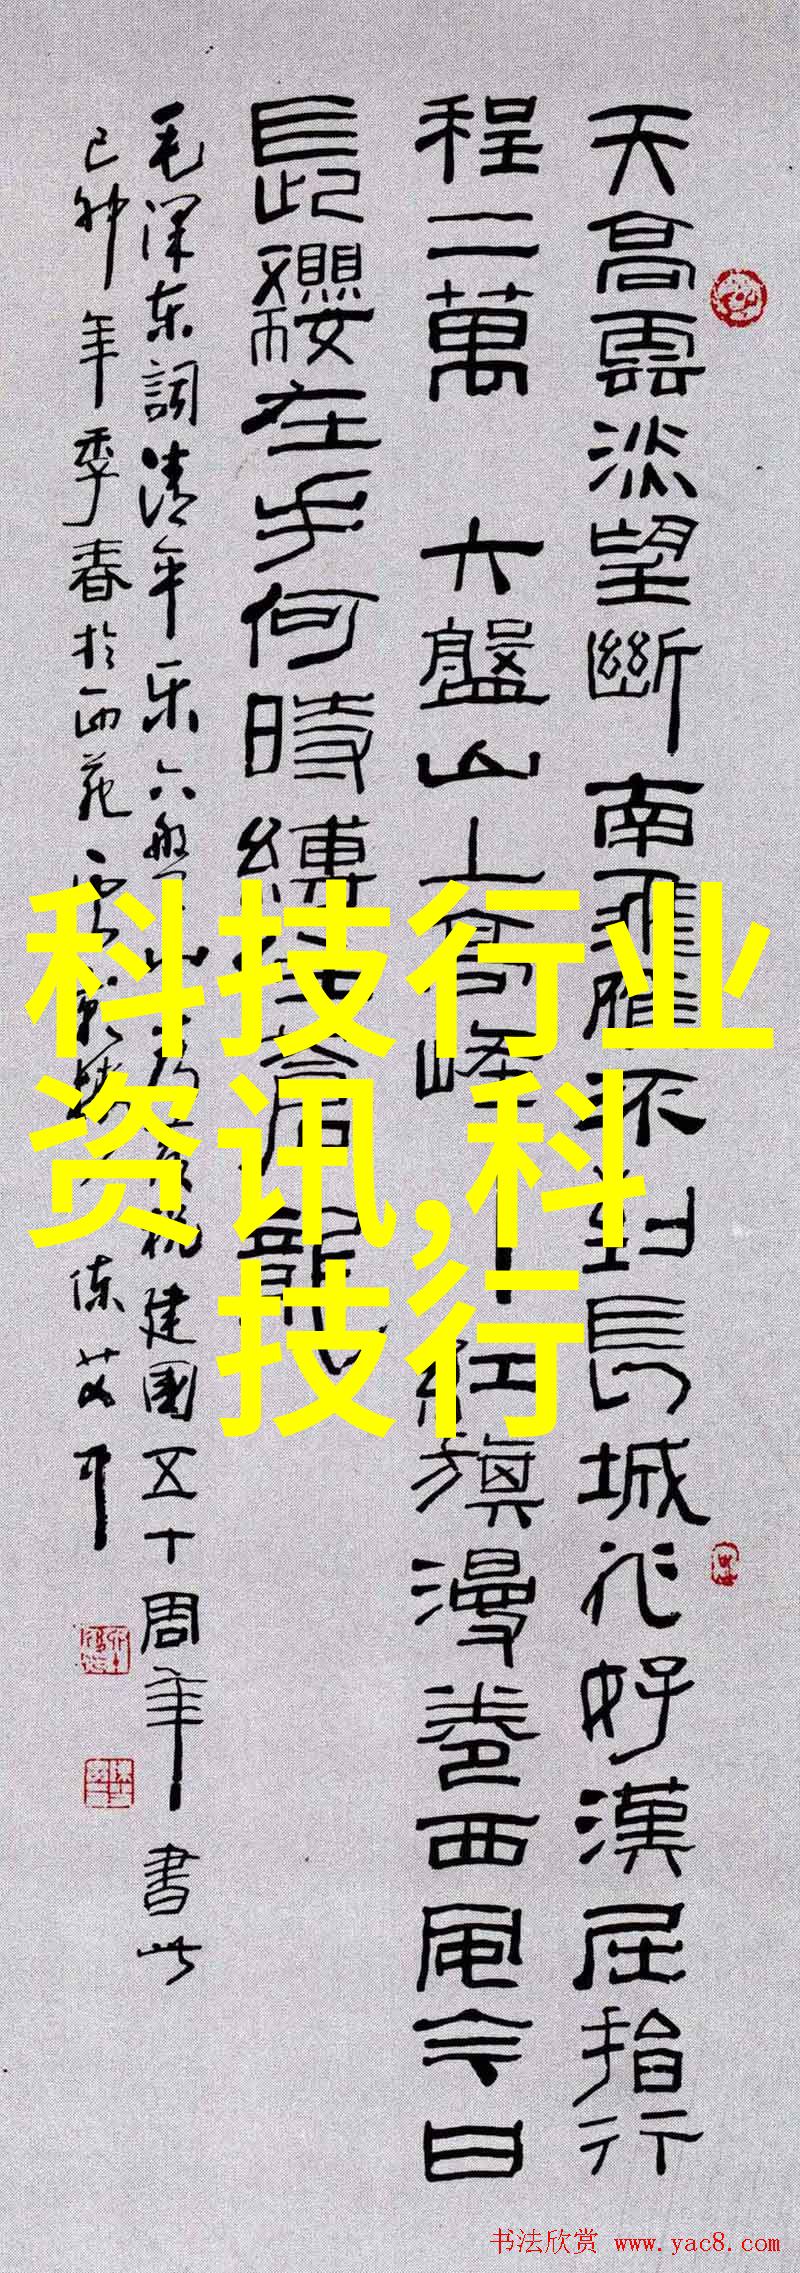 天高雲淡望斷南飛雁不到長城非好漢屈指行
程二萬 六盤山上高峰紅旗漫卷西風今日
長纓在手何時縛住蒼龍
毛澤东詞清平乐六盤山 祝建國五十周年書此
己卯年季春於西苑
科技行业
资讯,科
技行
书法欣赏 www.yac8.com